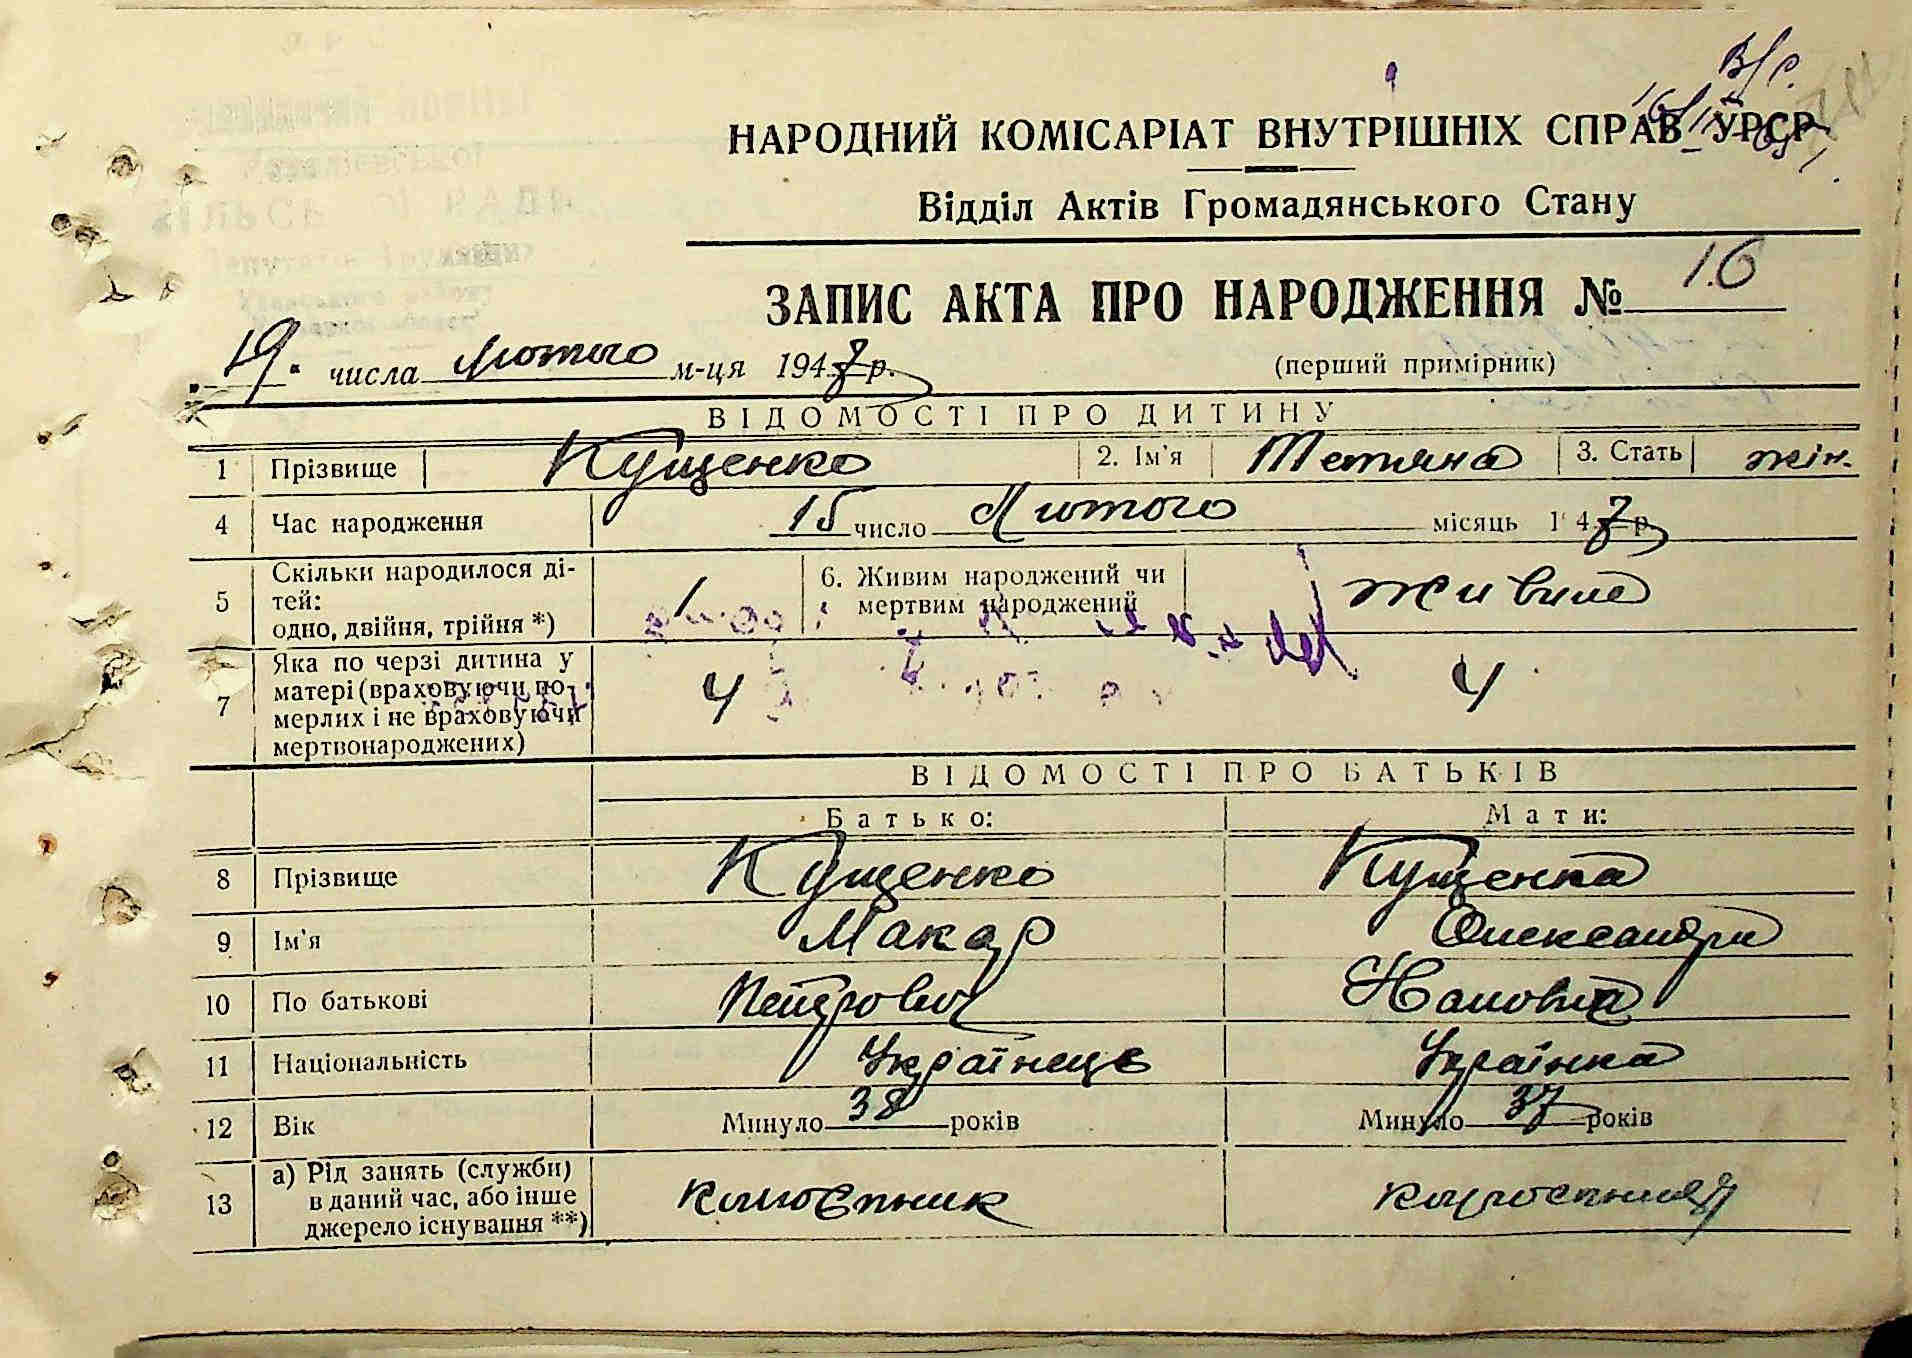 В/р.
НАРОДНИЙ КОМІСАРІАТ ВНУТРІШНІХ СПРАВ УРСР
Відділ Актів Громадянського Стану
ЗАПИС АКТА ПРО НАРОДЖЕННЯ № 16
19. числа лютого м-ця 1947 р.
(перший примірник)
ВІДОМОСТІ ПРО ДИТИНУ
1 Прізвище Кущенко 2. Ім'я Тетяна 3. Стать жін.
4 Час народження 15 число Лютого місяць 1947 р.
5 Скільки народилося ді-
тей:
одно, двійня, трійня *) 1
6. Живим народжений чи
мертвим народжений живие
7 Яка по черзі дитина у
матері (враховуючи по-
мерлих і не враховуючи
мертвонароджених) 4 4
ВІДОМОСТІ ПРО БАТЬКІВ
Батько: Мати:
8 Прізвище Кущенко Кущенка
9 Ім'я Макар Олександра
10 По батькові Петрович
11 Національність Українець Українка
12 Вік Минуло 38 років Минуло 37 років
13 а) Рід занять (служби)
в даний час, або інше
джерело існування **) колгоспник колгоспниця